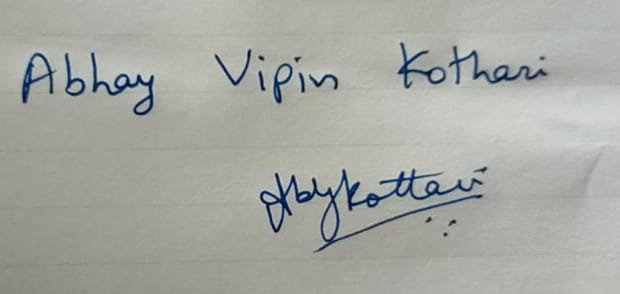 Abhay Vipin Kothari
Abhykothari